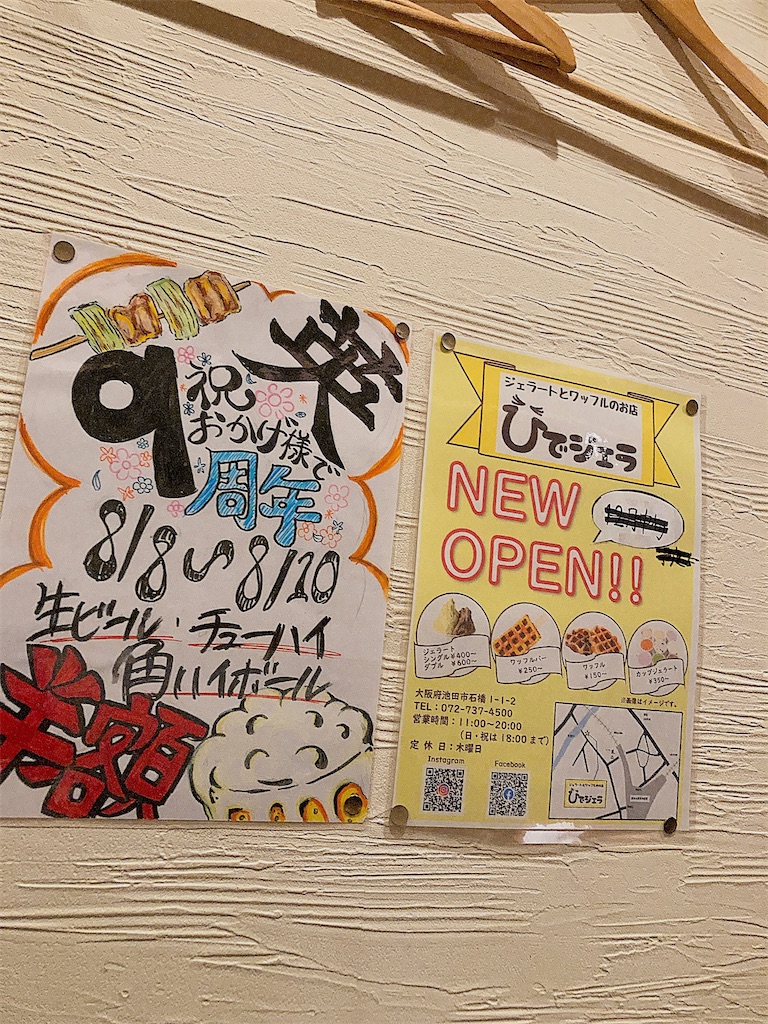 英
祝
おかげ様で
9周年
8/8〜8/20
生ビール・チューハイ
角ハイボール
半額
ジェラートとワッフルのお店
ひでジェラ
NEW
OPEN!!
ジェラート
シングル ¥400〜
ダブル ¥600〜
ワッフルバー
¥250〜
ワッフル
¥150〜
カップジェラート
¥350〜
※画像はイメージです。
大阪府池田市石橋 1-1-2
TEL: 072-737-4500
営業時間：11:00〜20:00
（日・祝は 18:00 まで）
定 休 日：木曜日
Instagram
Facebook
ジェラートとワッフルのお店
ひでジェラ